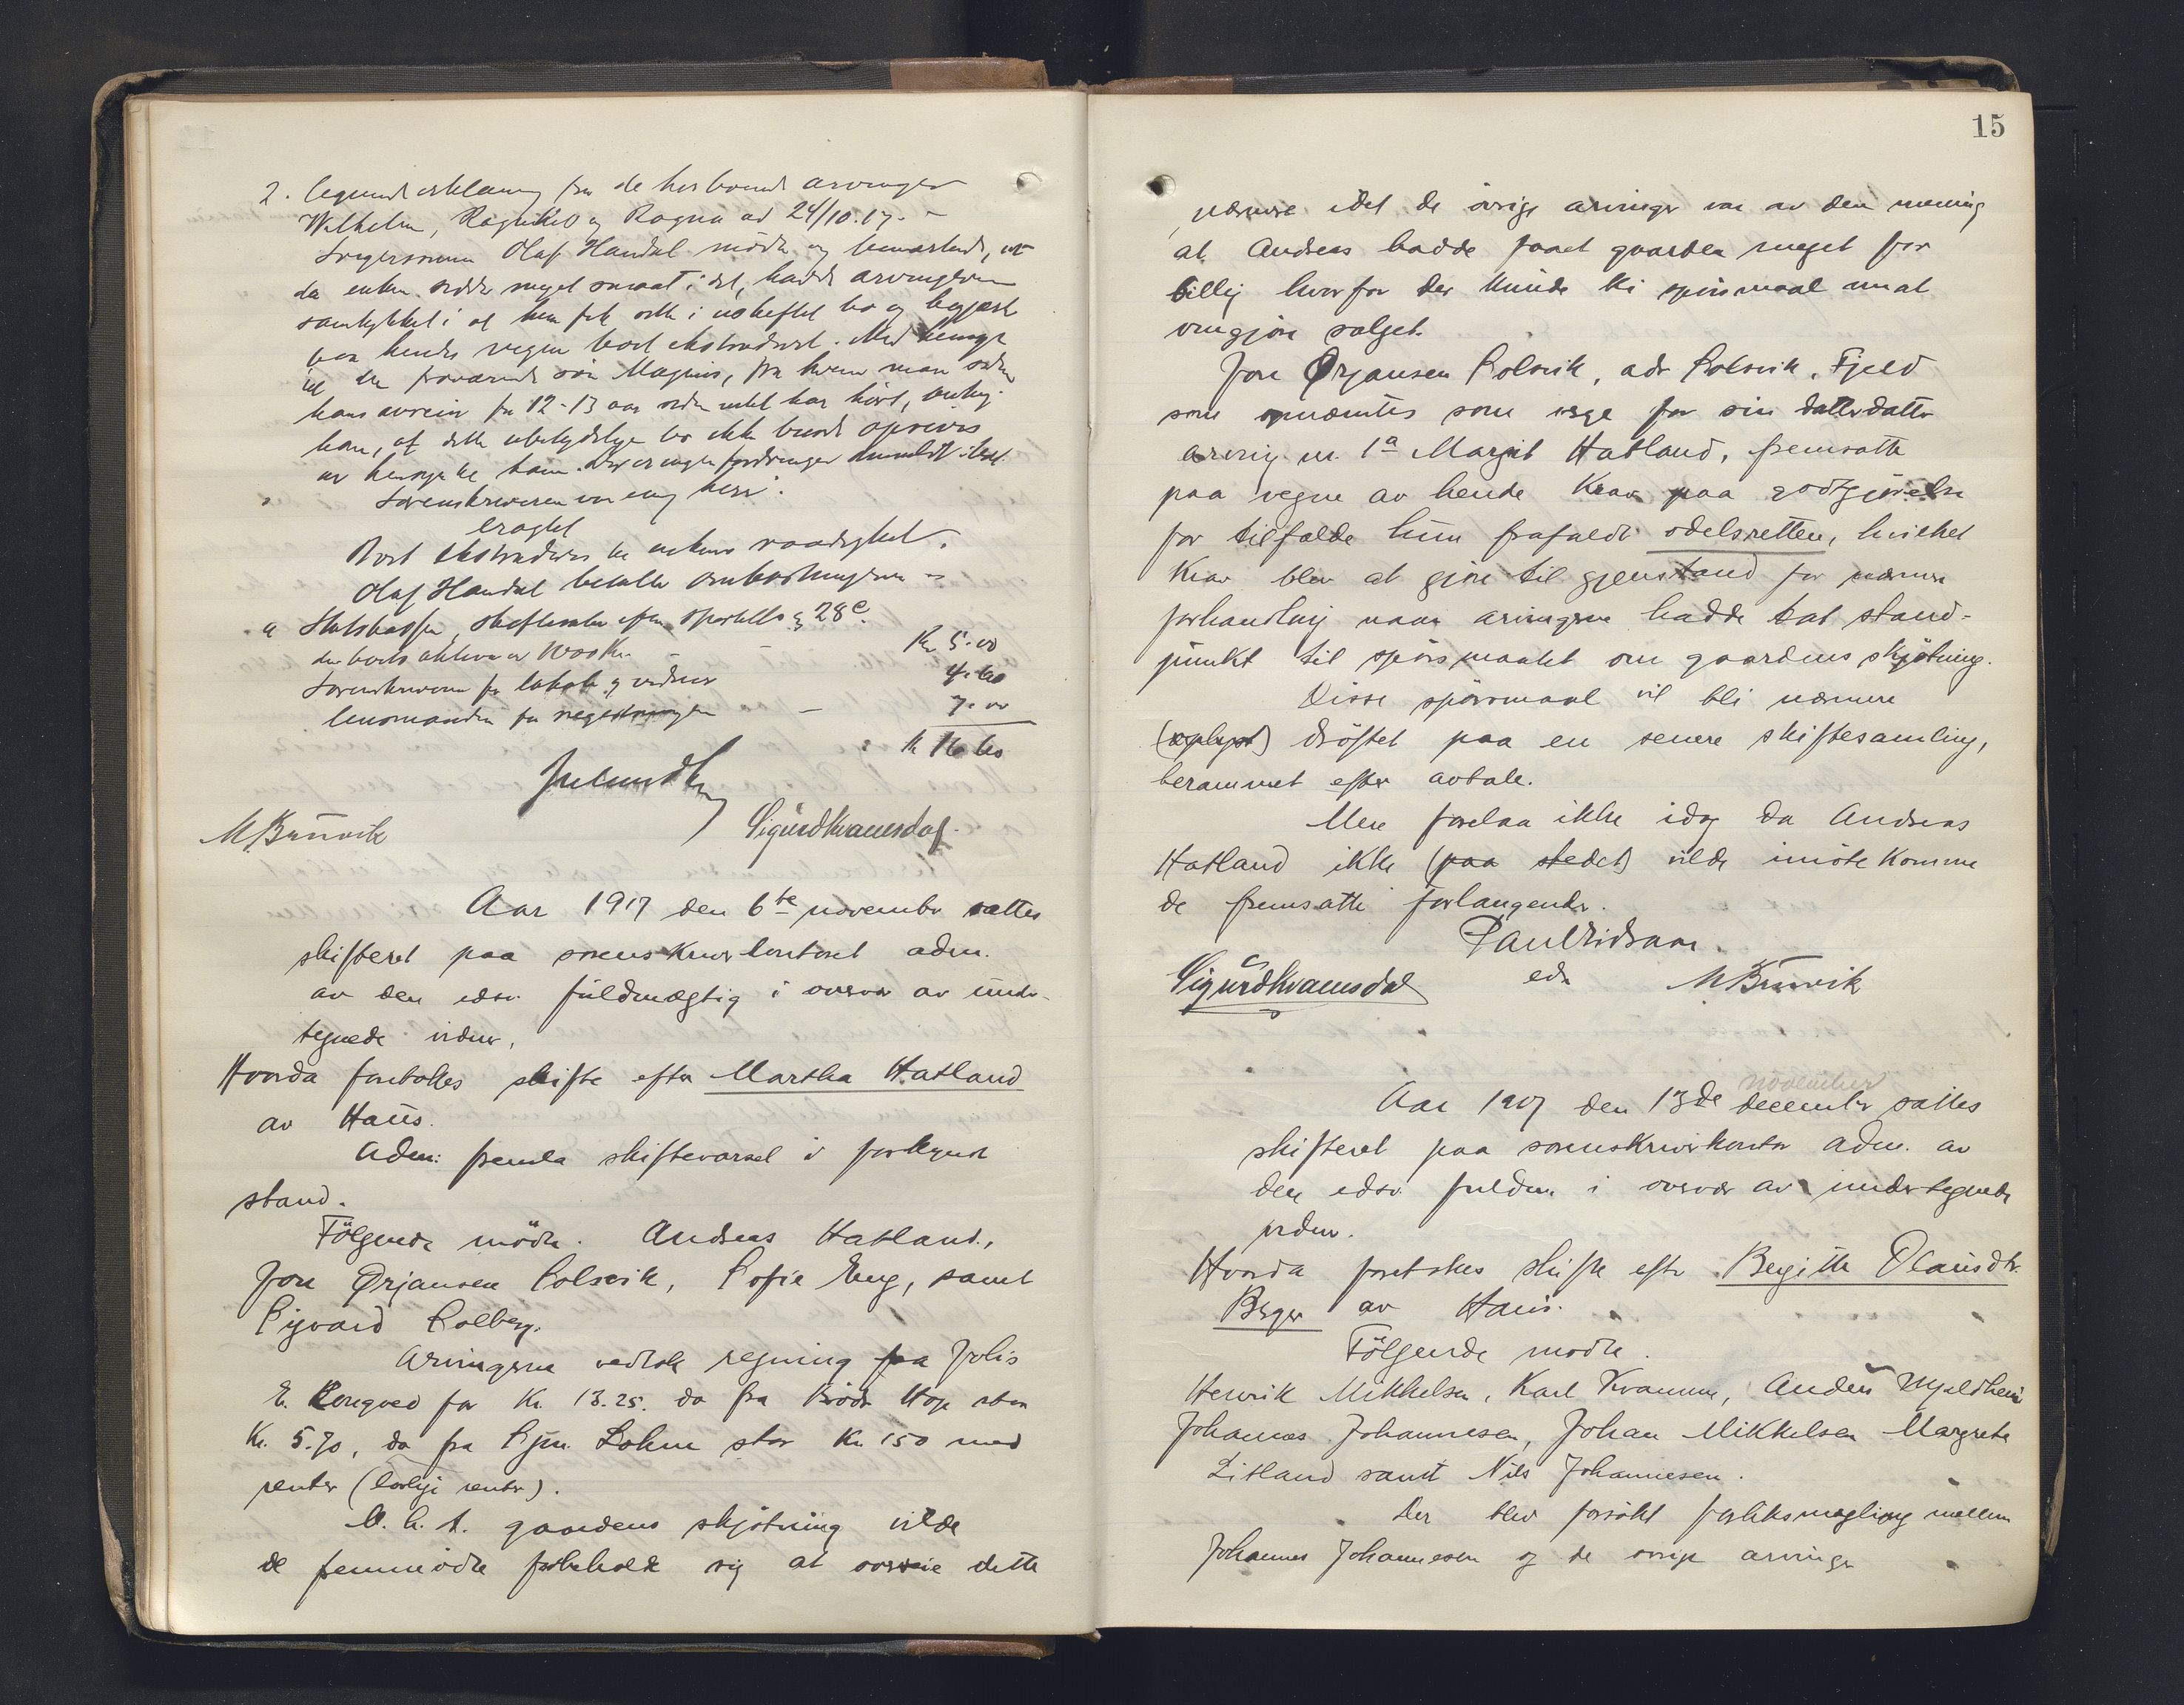 2. lignende erklæring fra de herboende arvinger
Wilhelm, Ragnhild og Ragna ad 24/10.17. –
Svigersønnen Olaf Handal mødte og bemærkede, at
da enken sidder meget smaat i det, hadde arvingerne
samtykket i at hun fik sitte i uskiftet bo og begjært
paa hendes vegne boet ekstradert. Med hensyn
til den fraværende søn Magnus, fra hvem man siden
hans avreise for 12-13 aar siden intet har hørt, antog
han, at dette ubetydelige bo ikke burde opgjøres
av hensyn til ham. Der er ingen fordringer anmeldt i boet.
Sorenskriveren var enig heri.
eragtet
Boet ekstraderes til enkens raadighet.
Olaf Handal betalte omkostningerne –
a Statskassen, skifteslutn efter sportello § 28 e.
da boets aktiva er 1000 Kr. – Kr 5.00
Sorenskriveren for lokale og vidner 4.60
lensmanden for registreringen – 7.00
Kr 16.60
M Brunvik Sigurd Kvamsdal.
Aar 1917 den 6te november sattes
skifteret paa sorenskriverkontoret adm.
av den edsv. fuldmægtig i overvær av under-
tegnede vidner,
Hvorda foretokes skifte efter Martha Hatland
av Haus.
Adm: fremla skiftevarsel i forkyndt
stand.
Følgende mødte. Andreas Hatland,
Jon Ørjansen Solsvik, Sofie Eng, samt
Sigvard Solberg.
Arvingerne vedtok regning fra Johs
E. Rongved for Kr. 13.25. do fra Brødr Hop stor
Kr. 5.70, do fra Sjm. Lohne stor Kr. 150 med
renter (lovlige renter).
M. h. t. gaardens skjøtning vilde
de fremmødte forbeholde sig at overveie dette
15
nærmere idet de øvrige arvinger var av den mening
at Andreas hadde faaet gaarden meget for
billig hvorfor der kunde bli spørsmaal um at
omgjøre salget.
Jon Ørjansen Solsvik, adr Solsvik, Fjeld
som opnævntes som verge for sin datterdatter
arving nr. 1a Margit Hatland, fremsatte
paa vegne av hende Krav paa godtgjørelse
for tilfælde hun frafaldt odelsretten, hvilket
Krav blev at gjøre til gjenstand for nærmere
forhandling naar arvingerne hadde tat stand-
punkt til spørsmaalet om gaardens skjøtning.
Disse spørsmaal vil bli nærmere
(oplyst) drøftet paa en senere skiftesamling,
berammet efter avtale.
Mere forelaa ikke idag da Andreas
Hatland ikke (paa stedet) vilde imøtekomme
de fremsatte forlangender.
Paul Vidsaae.
Sigurd Kvamsdal eds M Brunvik
november
Aar 1917 den 13de december sattes
skifteret paa sorenskriverkontor adm. av
den edsv. fuldm. i overvær av undertegnede
vidner.
Hvorda foretokes skifte efter Bergitte Olausdtr.
Berge av Haus.
Følgende mødte.
Henrik Mikkelsen, Karl Kvamme, Anders Mjeldheim
Johannes Johannesen, Johan Mikkelsen Margrete
Litland samt Nils Johannesen.
Der blev forsøkt forliksmegling mellem
Johannes Johannesen og de øvrige arvinger